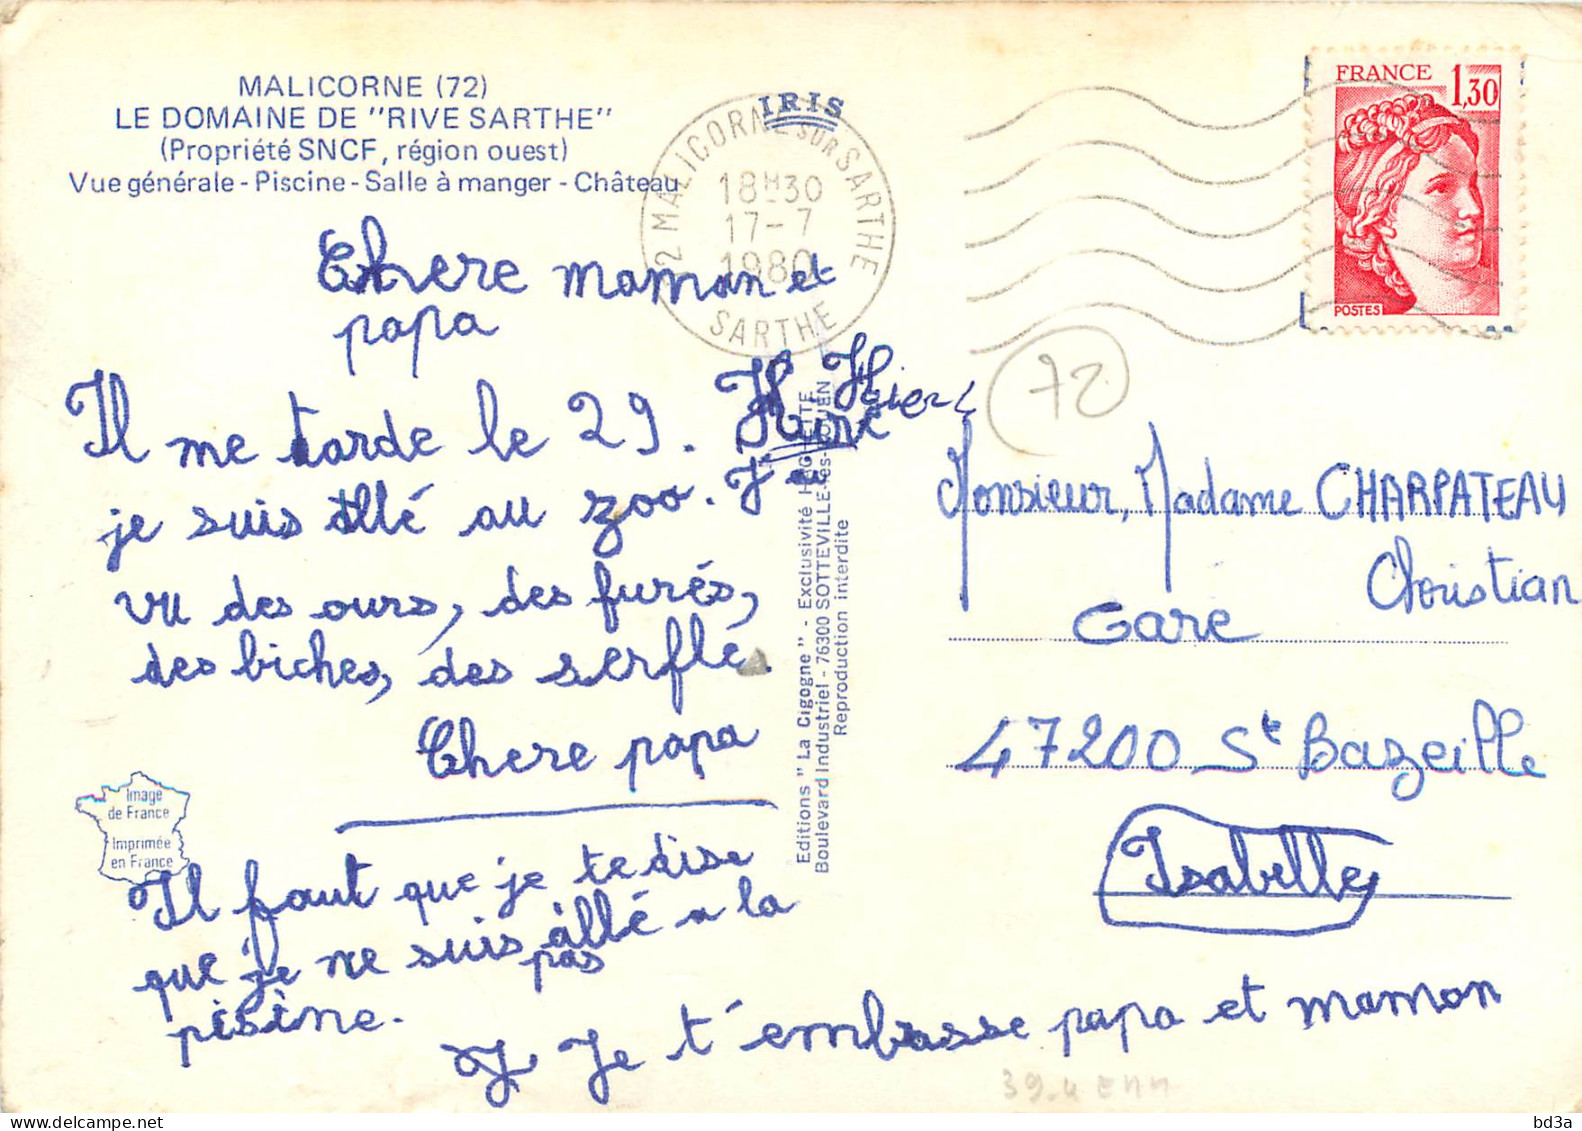 MALICORNE (72)
LE DOMAINE DE "RIVE SARTHE"
(Propriété SNCF, région ouest)
Vue générale - Piscine - Salle à manger - Château
IRIS
72 MALICORNE SUR SARTHE
18H30
17-7
1980
SARTHE
FRANCE 1,30
POSTES
72
Chere maman et
papa
Il me tarde le 29. Hier
je suis allé au zoo. J'ai
vu des ours, des furés,
des biches, des serfle.
Chere papa
Il faut que je te dise
que je ne suis allé a la
pas
pisine.
Je t'embrasse papa et maman
Image
de France
Imprimée
en France
Editions "La Cigogne" - Exclusivité HACHETTE
Boulevard Industriel - 76300 SOTTEVILLE-lès-ROUEN
Reproduction interdite
Monsieur, Madame CHARPATEAU
Christian
Gare
47200 St Bazeille
Isabelle
delcampe.net
bd3a